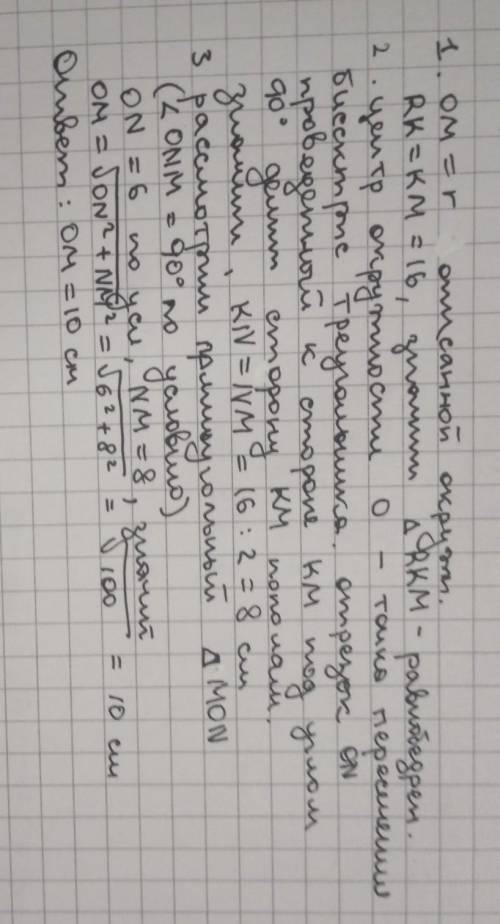 1. OM = r описанной окружн.
RK = KM = 16, значит △RKM - равнобедрен.
2. центр окружности O - точка пересечения
биссектрис треугольника. отрезок ON
проведенный к стороне KM под углом
90° делит сторону KM пополам.
значит, KN = NM = 16 : 2 = 8 см
3 рассмотрим прямоугольный △MON
(∠ONM = 90° по условию)
ON = 6 по усл, NM = 8, значит
OM = √ON² + NM² = √6² + 8² = √100 = 10 см
Ответ : OM = 10 см